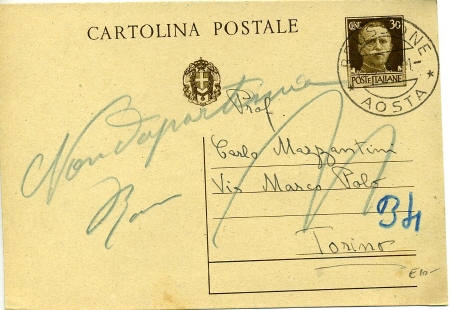 CARTOLINA POSTALE
CENT 30
POSTE ITALIANE
AOSTA
Prof.
Carlo Mazzantini
Via Marco Polo
Torino
34
€10-